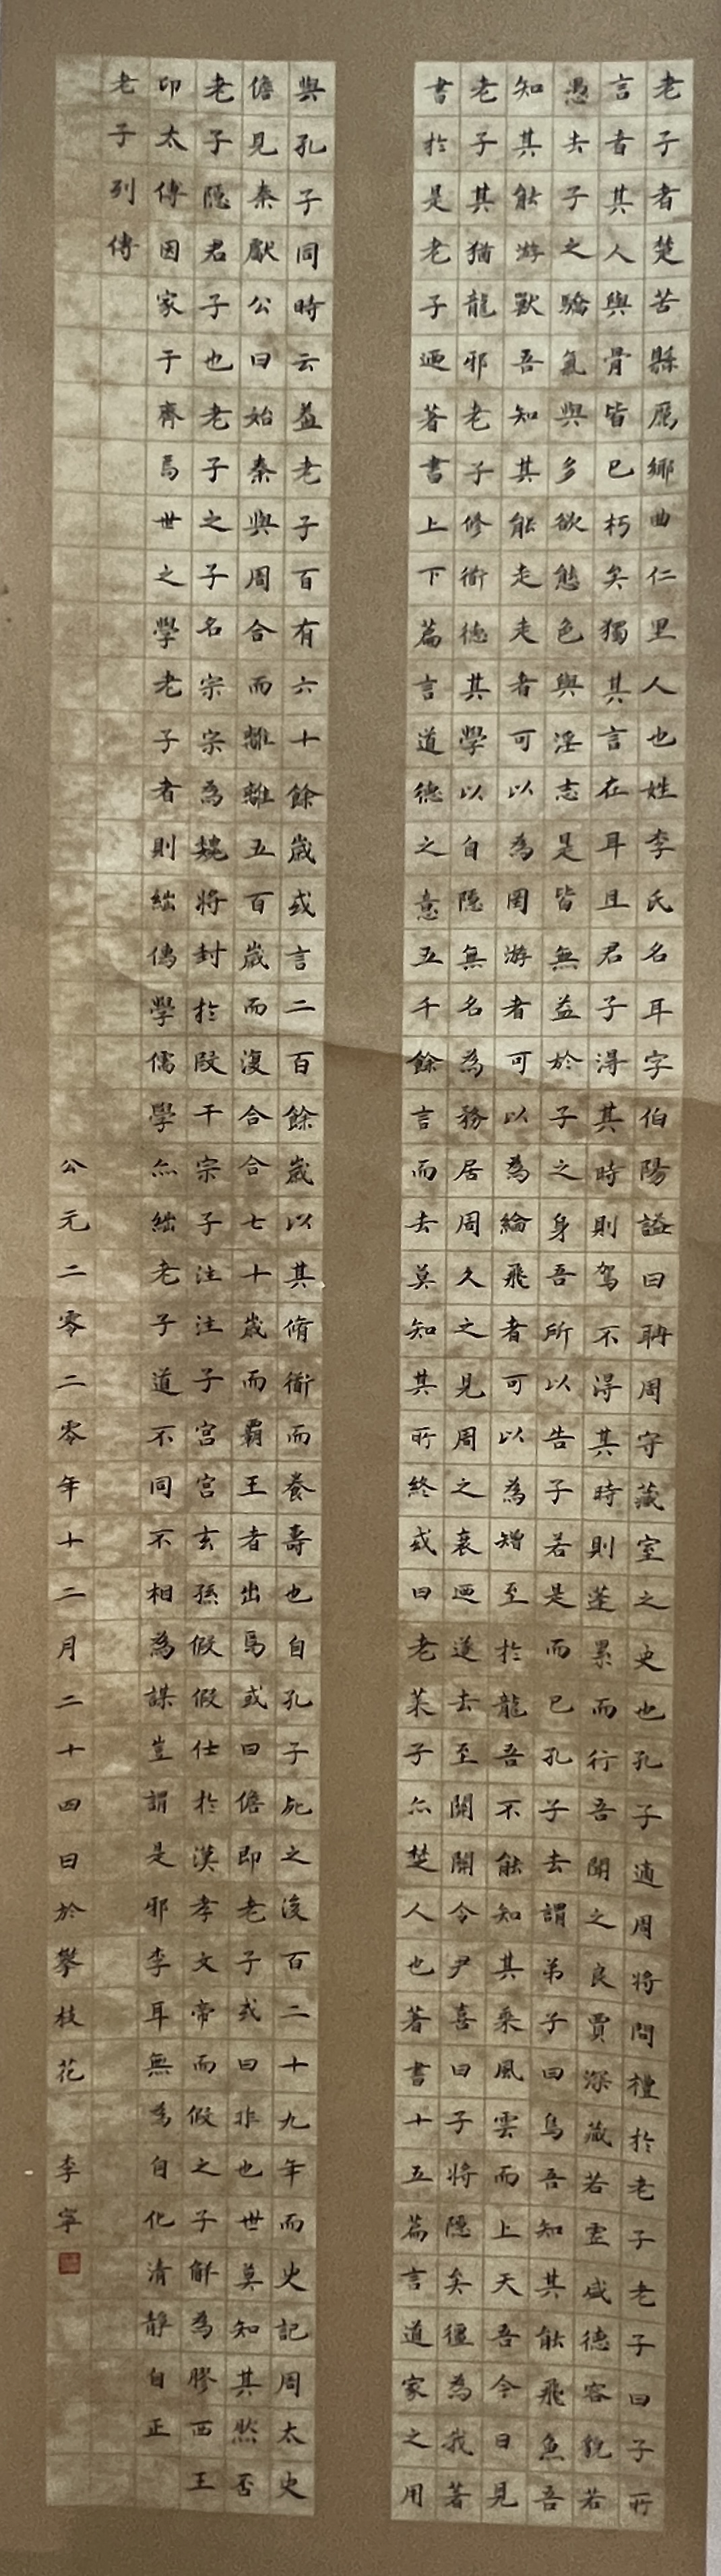 老子者楚苦縣厲鄉曲仁里人也姓李氏名耳字伯陽謚曰耼周守藏室之史也孔子適周將問禮於老子老子曰子所
言者其人與骨皆已朽矣獨其言在耳且君子得其時則駕不得其時則蓬累而行吾聞之良賈深藏若虛盛德容貌若
愚去子之驕氣與多欲態色與淫志是皆無益於子之身吾所以告子若是而已孔子去謂弟子曰鳥吾知其能飛魚吾
知其能游獸吾知其能走走者可以為罔游者可以為綸飛者可以為矰至於龍吾不能知其乘風雲而上天吾今日見
老子其猶龍邪老子修衟德其學以自隱無名為務居周久之見周之衰迺遂去至關關令尹喜曰子將隱矣彊為我著
書於是老子迺著書上下篇言道德之意五千餘言而去莫知其所終或曰老萊子亦楚人也著書十五篇言道家之用
與孔子同時云蓋老子百有六十餘歲或言二百餘歲以其脩衟而養壽也自孔子死之後百二十九年而史記周太史
儋見秦獻公曰始秦與周合而離離五百歲而復合合七十歲而霸王者出焉或曰儋即老子或曰非也世莫知其然否
老子隱君子也老子之子名宗宗為魏將封於段干宗子注注子宮宮玄孫假假仕於漢孝文帝而假之子解為膠西王
卬太傅因家于齊焉世之學老子者則絀儒學儒學亦絀老子道不同不相為謀豈謂是邪李耳無為自化清靜自正
老子列傳
公元二零二零年十二月二十四日於攀枝花 李寧